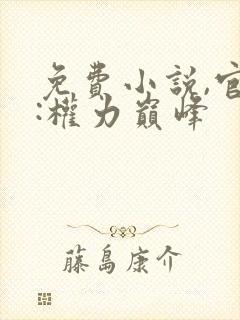 免費小説,官
:權力巔峰
藤島康介